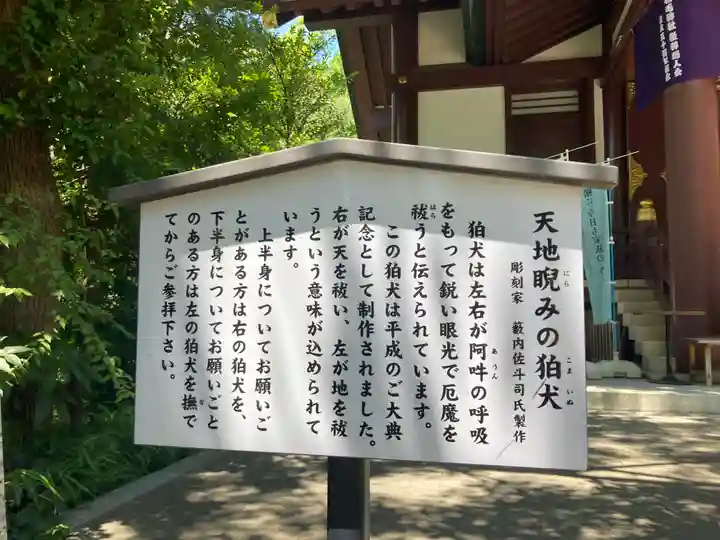 天地睨みの狛犬
にら
こまいぬ
彫刻家　籔内佐斗司氏製作
狛犬は左右が阿吽の呼吸
あうん
をもって鋭い眼光で厄魔を
祓うと伝えられています。
はら
この狛犬は平成のご大典
記念として制作されました。
右が天を祓い、左が地を祓
うという意味が込められて
います。
上半身についてお願いご
とがある方は右の狛犬を、
下半身についてお願いごと
のある方は左の狛犬を撫で
な
てからご参拝下さい。